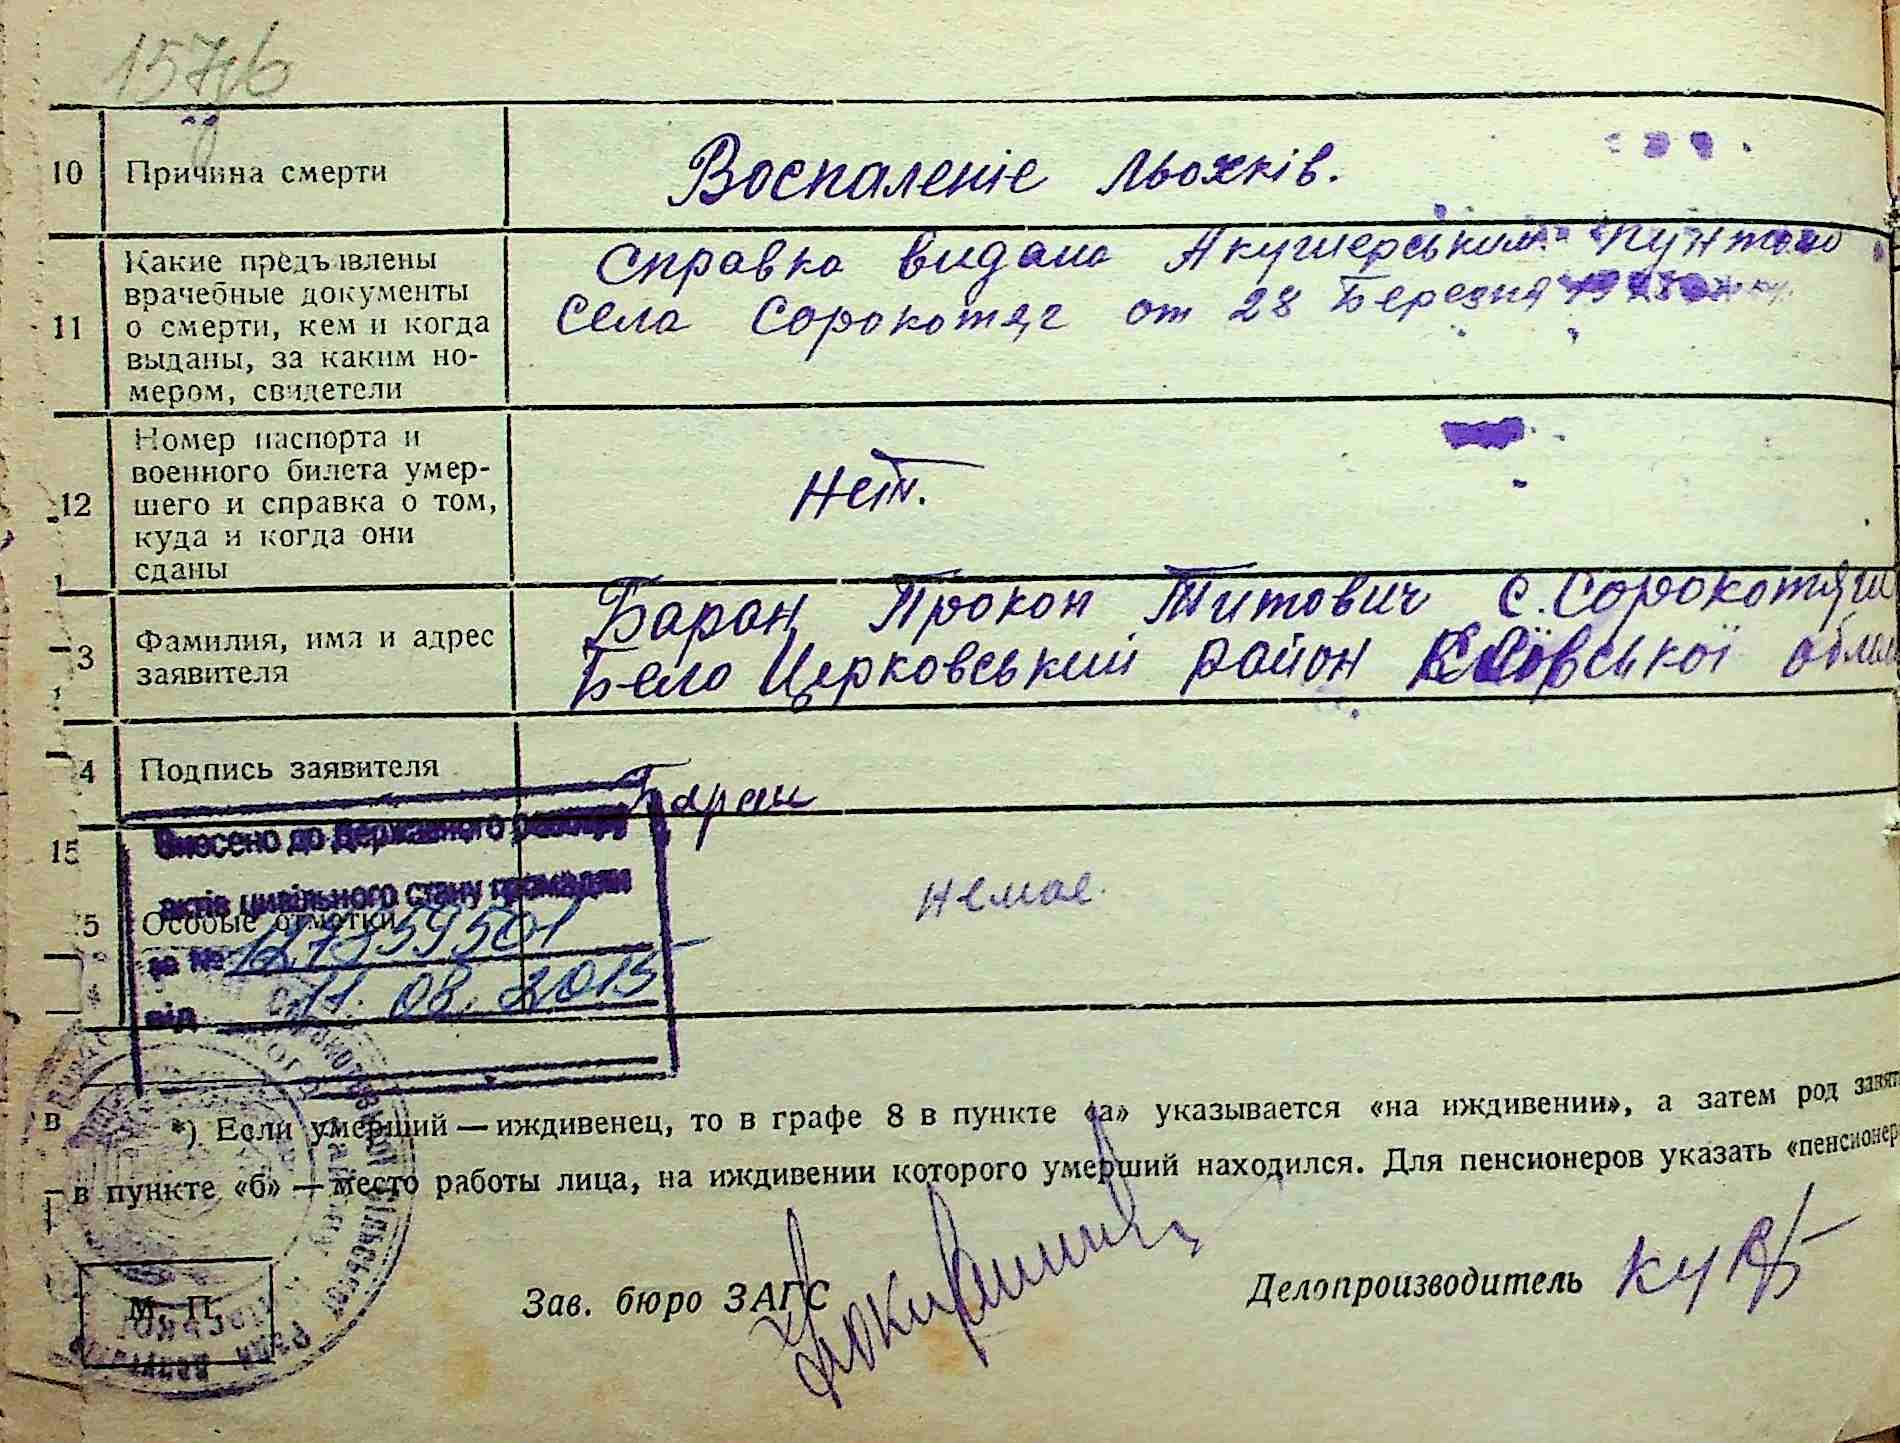 10 Причина смерти Воспаленіе льохків.
11 Какие предъявлены врачебные документы о смерти, кем и когда выданы, за каким но-
мером, свидетели
Справка видана Акушерським пунктом
Села Сорокотяг от 28 Березня
12 Номер паспорта и
военного билета умер-
шего и справка о том,
куда и когда они
сданы
Нет.
3 Фамилия, имя и адрес
заявителя
Баран Прокоп Титович с. Сорокотяги
Бело Церковський район Київської
4 Подпись заявителя Баран
15
5 Особые отметки немае.
Внесено до Державного реєстру
актів цивільного стану громадян
за №
від 11. 08. 2015
*) Если умерший — иждивенец, то в графе 8 в пункте «а» указывается «на иждивении», а затем род
в пункте «б» — место работы лица, на иждивении которого умерший находился. Для пенсионеров указать
М. П.
Зав. бюро ЗАГС
Делопроизводитель